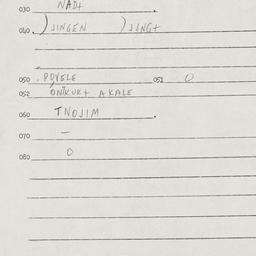 030 NAD+
040. ) JINGEN ) JING+
050. POVELE 051 O
052 ONIKUK+ AKALE
060 TNOJIM
070 —
080 O